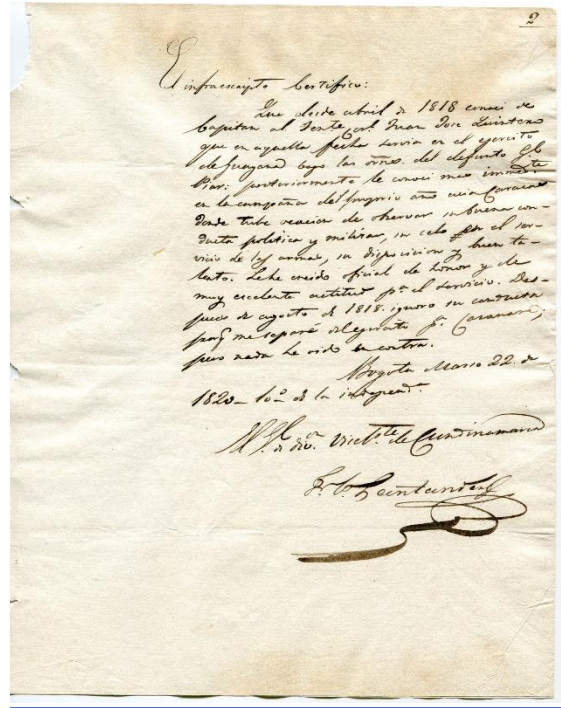 2
El infraescripto Certifico:
Que desde abril de 1818 conocí de
Capitan al Tente Corl. Juan Jose Quintero
que en aquella fecha servia en el egercito
de Guayana bajo las ornes. del defunto
Piar: posteriormente le conoci mas
en la campaña del propio año acia Caracas
donde tube ocacion de observar su buena con-
ducta politica y militar, su celo en el ser-
vicio de las armas, su disposicion y buen ta-
lento. Le he creido oficial de honor y de
muy excelente actitud pa. el servicio. Des-
pues de agosto de 1818. ignoro su conducta
porq. me separé del egercito pa. Casanare;
pero nada he oido en contra.
Bogota Marzo 22. de
1820_ 10º de la independ.
El Gl. de divon. Vicepte. de Cundinamarca
F. de P. Santander